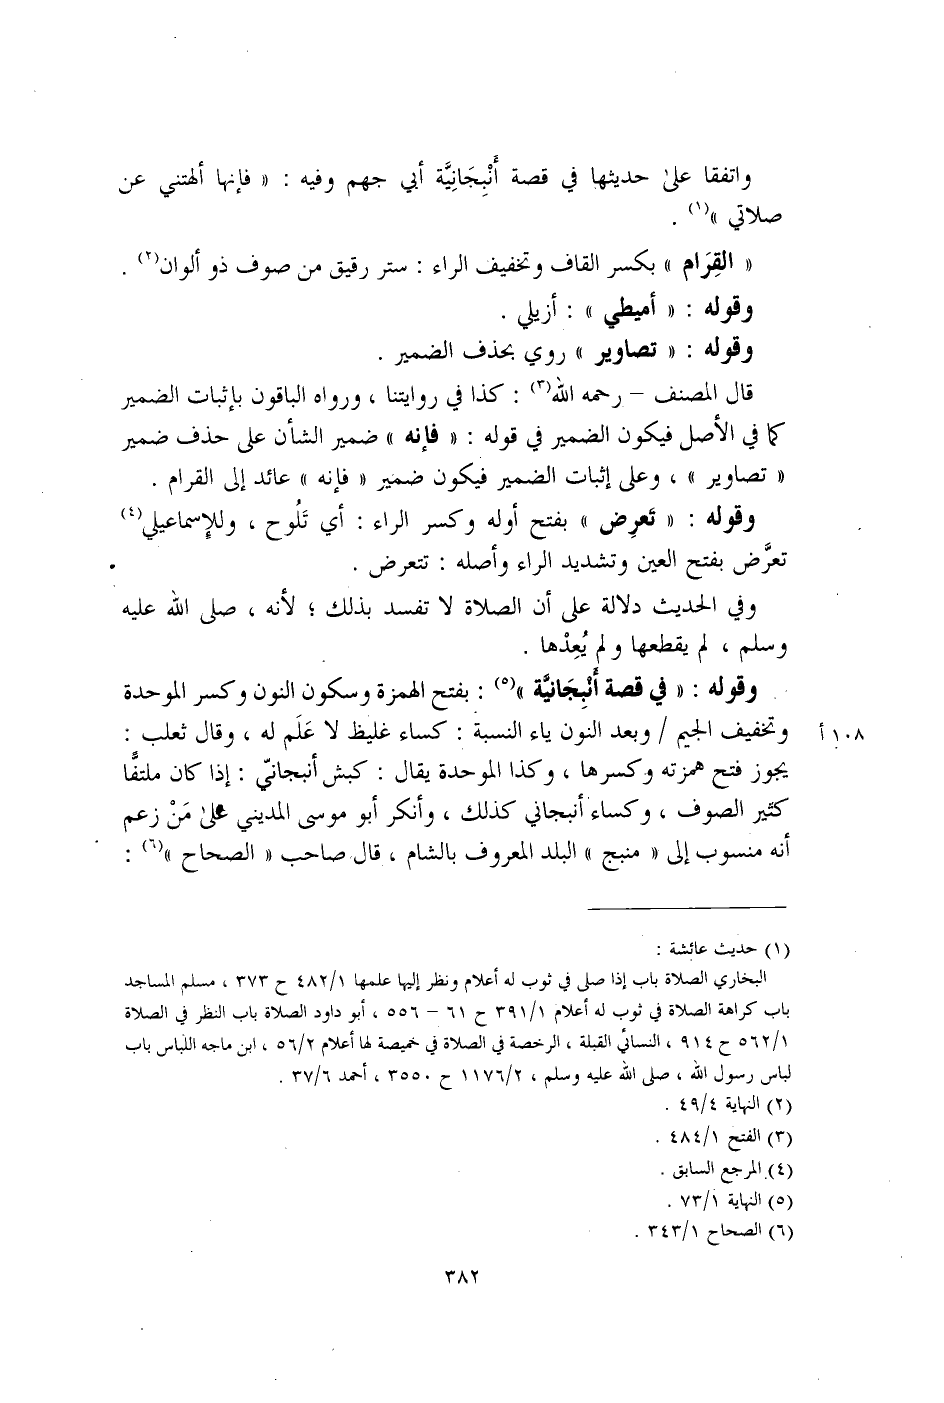 واتفقا على حديثها في قصة أَنْبِجَانِيَّة أبي جهم وفيه : « فإنها ألهتني عن
صلاتي »(١) .
« القِرَام » بكسر القاف وتخفيف الراء : ستر رقيق من صوف ذو ألوان(٢) .
وقوله : « أميطي » : أزيلي .
وقوله : « تصاوير » روي بحذف الضمير .
قال المصنف – رحمه الله(٣) : كذا في روايتنا ، ورواه الباقون بإثبات الضمير
كما في الأصل فيكون الضمير في قوله : « فإنه » ضمير الشأن على حذف ضمير
« تصاوير » ، وعلى إثبات الضمير فيكون ضمير « فإنه » عائد إلى القرام .
وقوله : « تَعرِض » بفتح أوله وكسر الراء : أي تَلُوح ، وللإسماعيلي(٤)
تعرَّض بفتح العين وتشديد الراء وأصله : تتعرض .
وفي الحديث دلالة على أن الصلاة لا تفسد بذلك ؛ لأنه ، صلى الله عليه
وسلم ، لم يقطعها ولم يُعِدْها .
وقوله : « في قصة أَنْبِجَانيَّة »(٥) : بفتح الهمزة وسكون النون وكسر الموحدة
وتخفيف الجيم / وبعد النون ياء النسبة : كساء غليظ لا عَلَم له ، وقال ثعلب : ١٠٨ أ
يجوز فتح همزته وكسرها ، وكذا الموحدة يقال : كبش أنبجانيّ : إذا كان ملتفًّا
كثير الصوف ، وكساء أنبجاني كذلك ، وأنكر أبو موسى المديني على مَنْ زعم
أنه منسوب إلى « منبج » البلد المعروف بالشام ، قال صاحب « الصحاح »(٦) :
(١) حديث عائشة :
البخاري الصلاة باب إذا صلى في ثوب له أعلام ونظر إليها علمها ٤٨٢/١ ح ٣٧٣ ، مسلم المساجد
باب كراهة الصلاة في ثوب له أعلام ٣٩١/١ ح ٦١ – ٥٥٦ ، أبو داود الصلاة باب النظر في الصلاة
٥٦٢/١ ح ٩١٤ ، النسائي القبلة ، الرخصة في الصلاة في خميصة لها أعلام ٥٦/٢ ، ابن ماجه اللباس باب
لباس رسول الله ، صلى الله عليه وسلم ، ١١٧٦/٢ ح ٣٥٥٠ ، أحمد ٣٧/٦ .
(٢) النهاية ٤٩/٤ .
(٣) الفتح ٤٨٤/١ .
(٤) المرجع السابق .
(٥) النهاية ٧٣/١ .
(٦) الصحاح ٣٤٣/١ .
٣٨٢